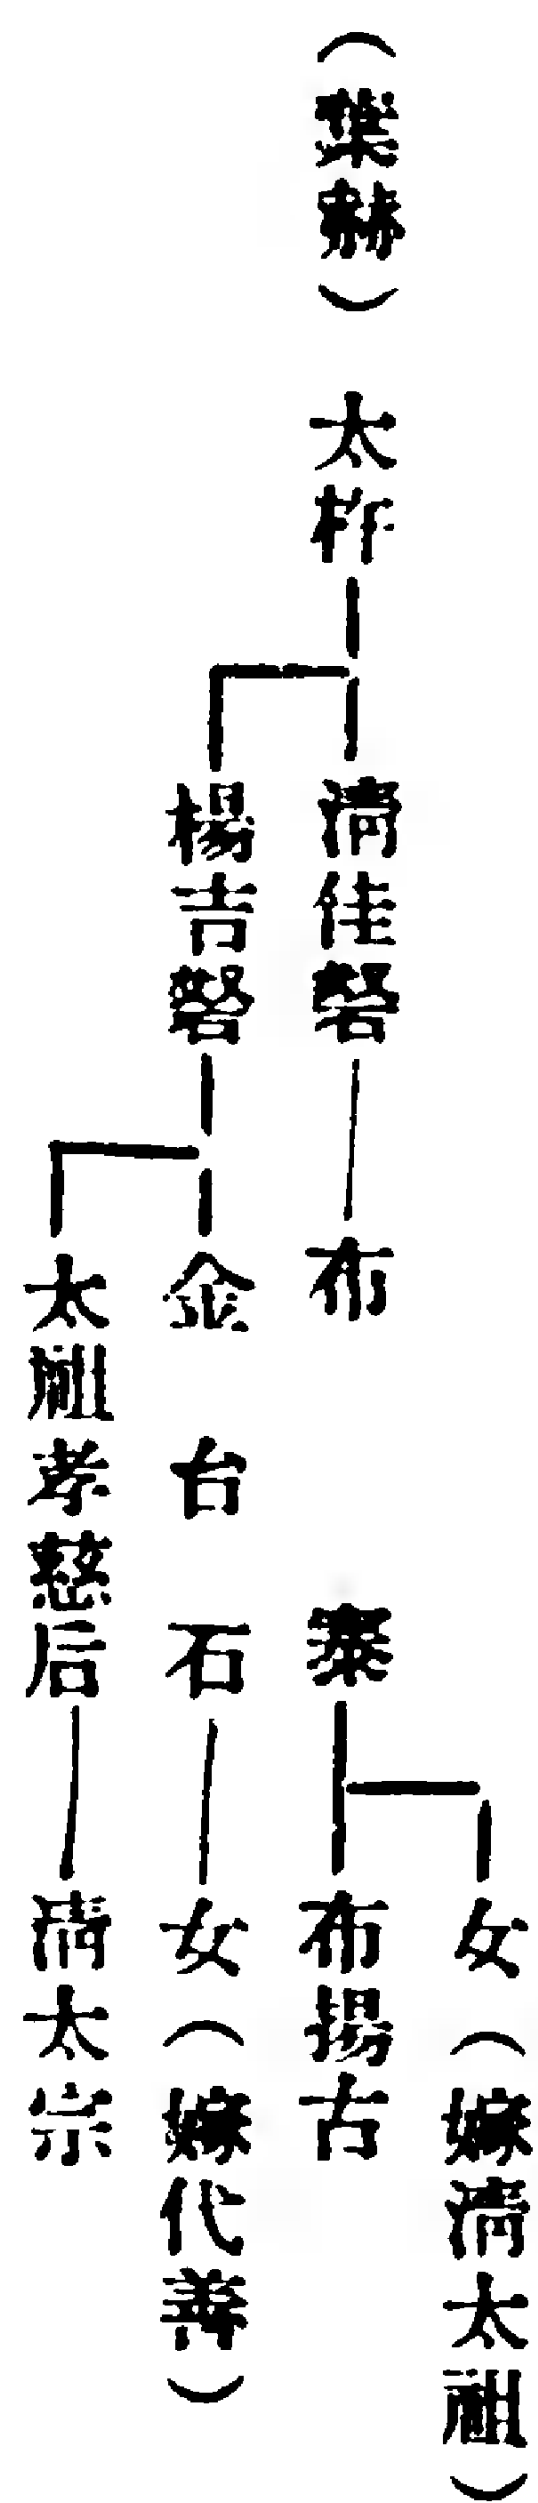 （葉赫）　太杵
清佳砮
楊吉砮
布　　　寨
金　台　石
太祖孝慈后
女（嫁清太祖）
布揚古
女（嫁代善）
清太宗